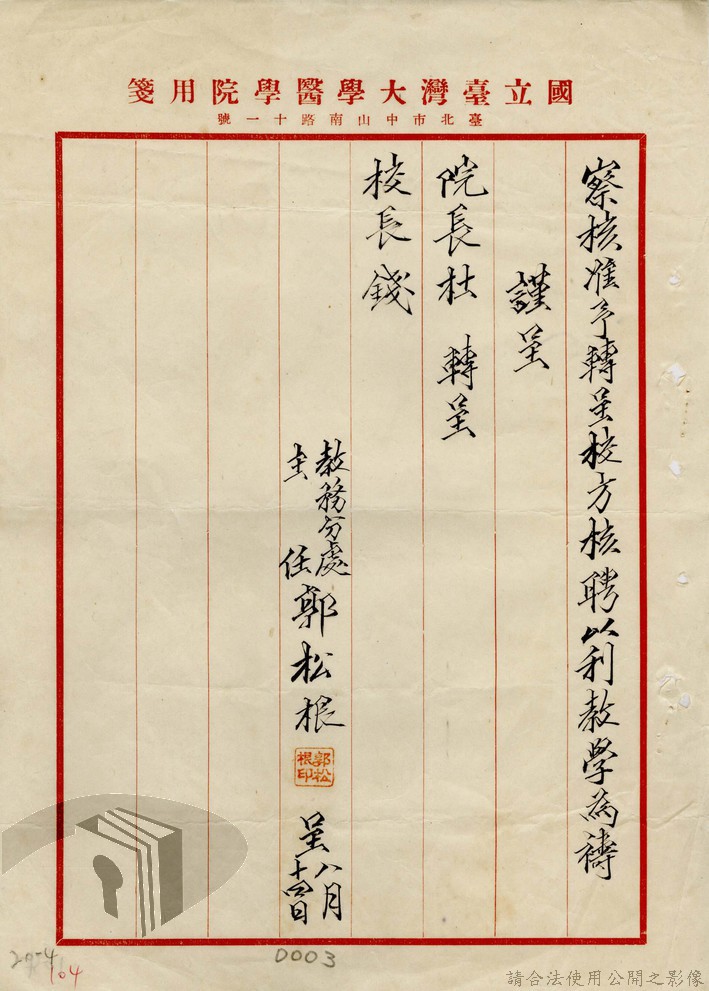 國立臺灣大學醫學院用箋
臺北市中山南路十一號
察核准予轉呈校方核聘以利教學為禱
謹呈
院長杜 轉呈
校長錢
教務分處
主任郭松根
郭松根印
呈
八月
十四日
0003
29-4
104
請合法使用公開之影像